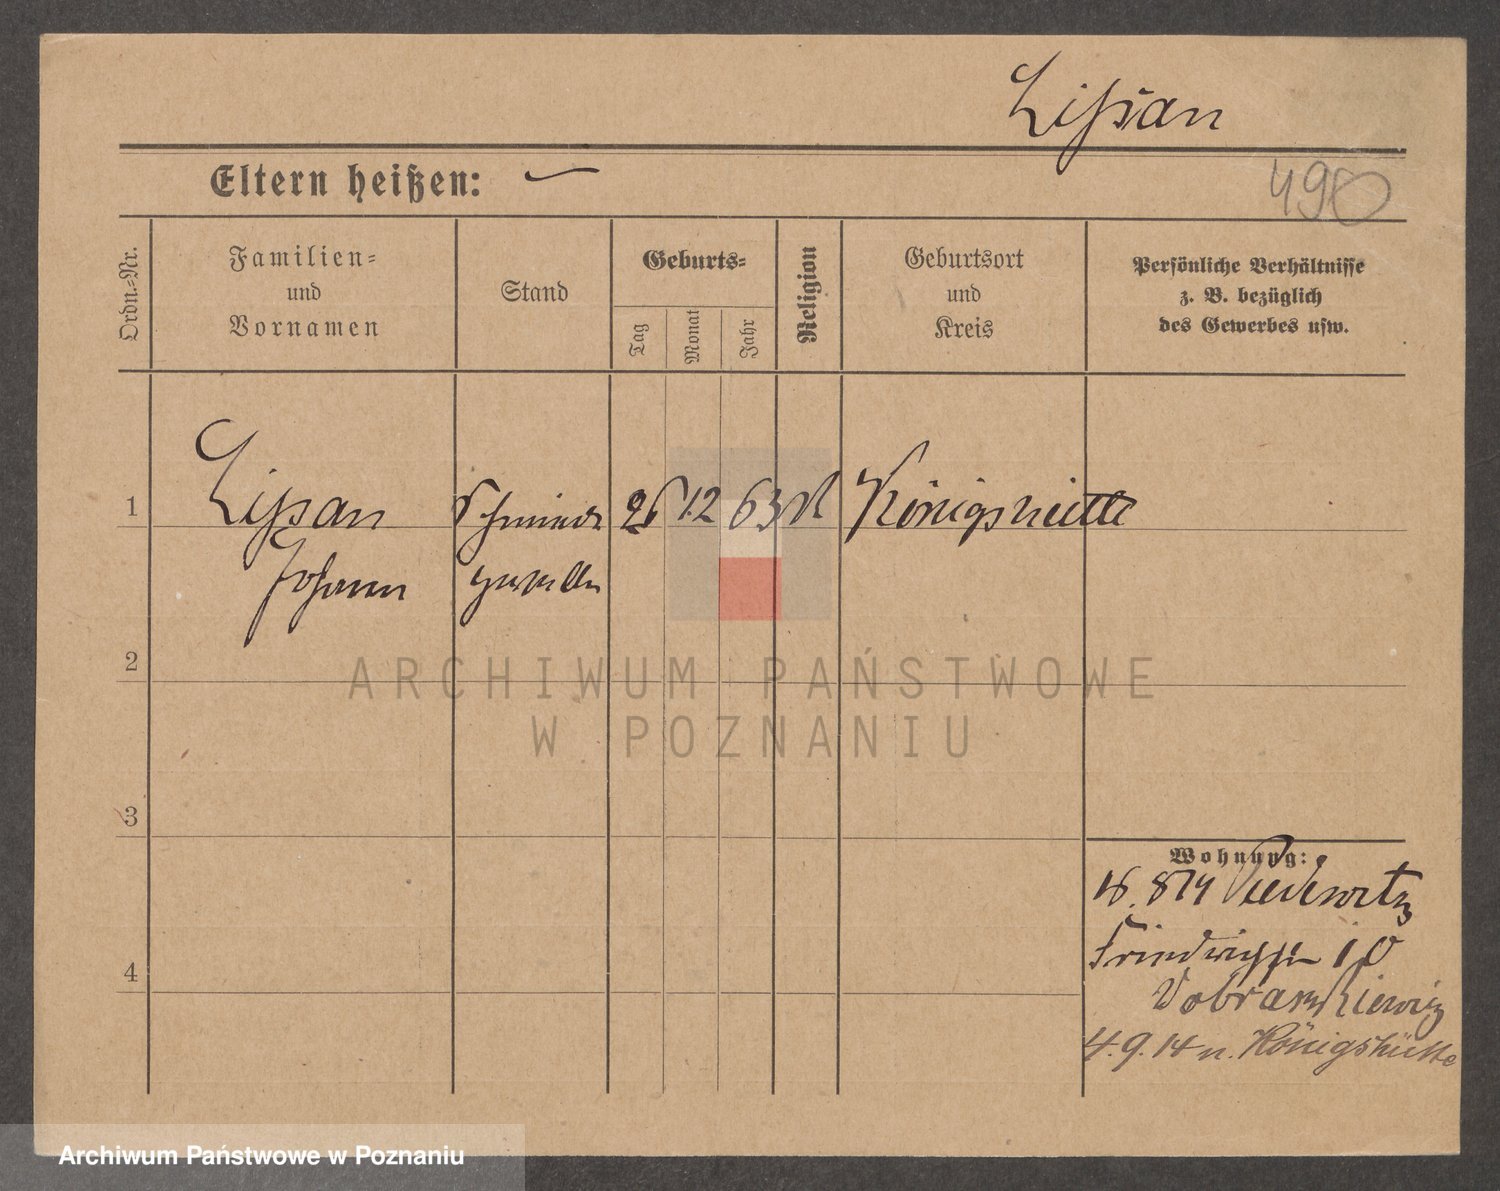 Lipian
Eltern heißen: —
490
Ordn.-Nr.
Familien-
und
Vornamen
Stand
Geburts-
Tag
Monat
Jahr
Religion
Geburtsort
und
Kreis
Persönliche Verhältnisse
z. B. bezüglich
des Gewerbes usw.
1
Lipian Schmiede 26 12 63 k Königshütte
Johann geselle
2
ARCHIWUM PAŃSTWOWE
W POZNANIU
3
4
Wohnung:
16. 8 14
10
4. 9. 14 n. Königshütte
Archiwum Państwowe w Poznaniu